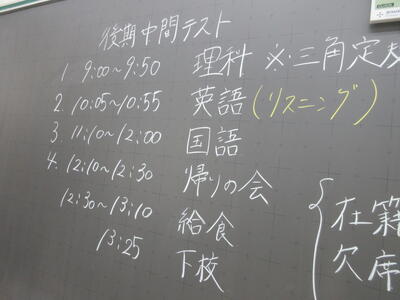 後期中間テスト
1. 9:00～9:50 理科 ※三角定
2. 10:05～10:55 英語(リスニング)
3. 11:10～12:00 国語
4. 12:10～12:30 帰りの会
12:30～13:10 給食
13:25 下校
在籍
欠席